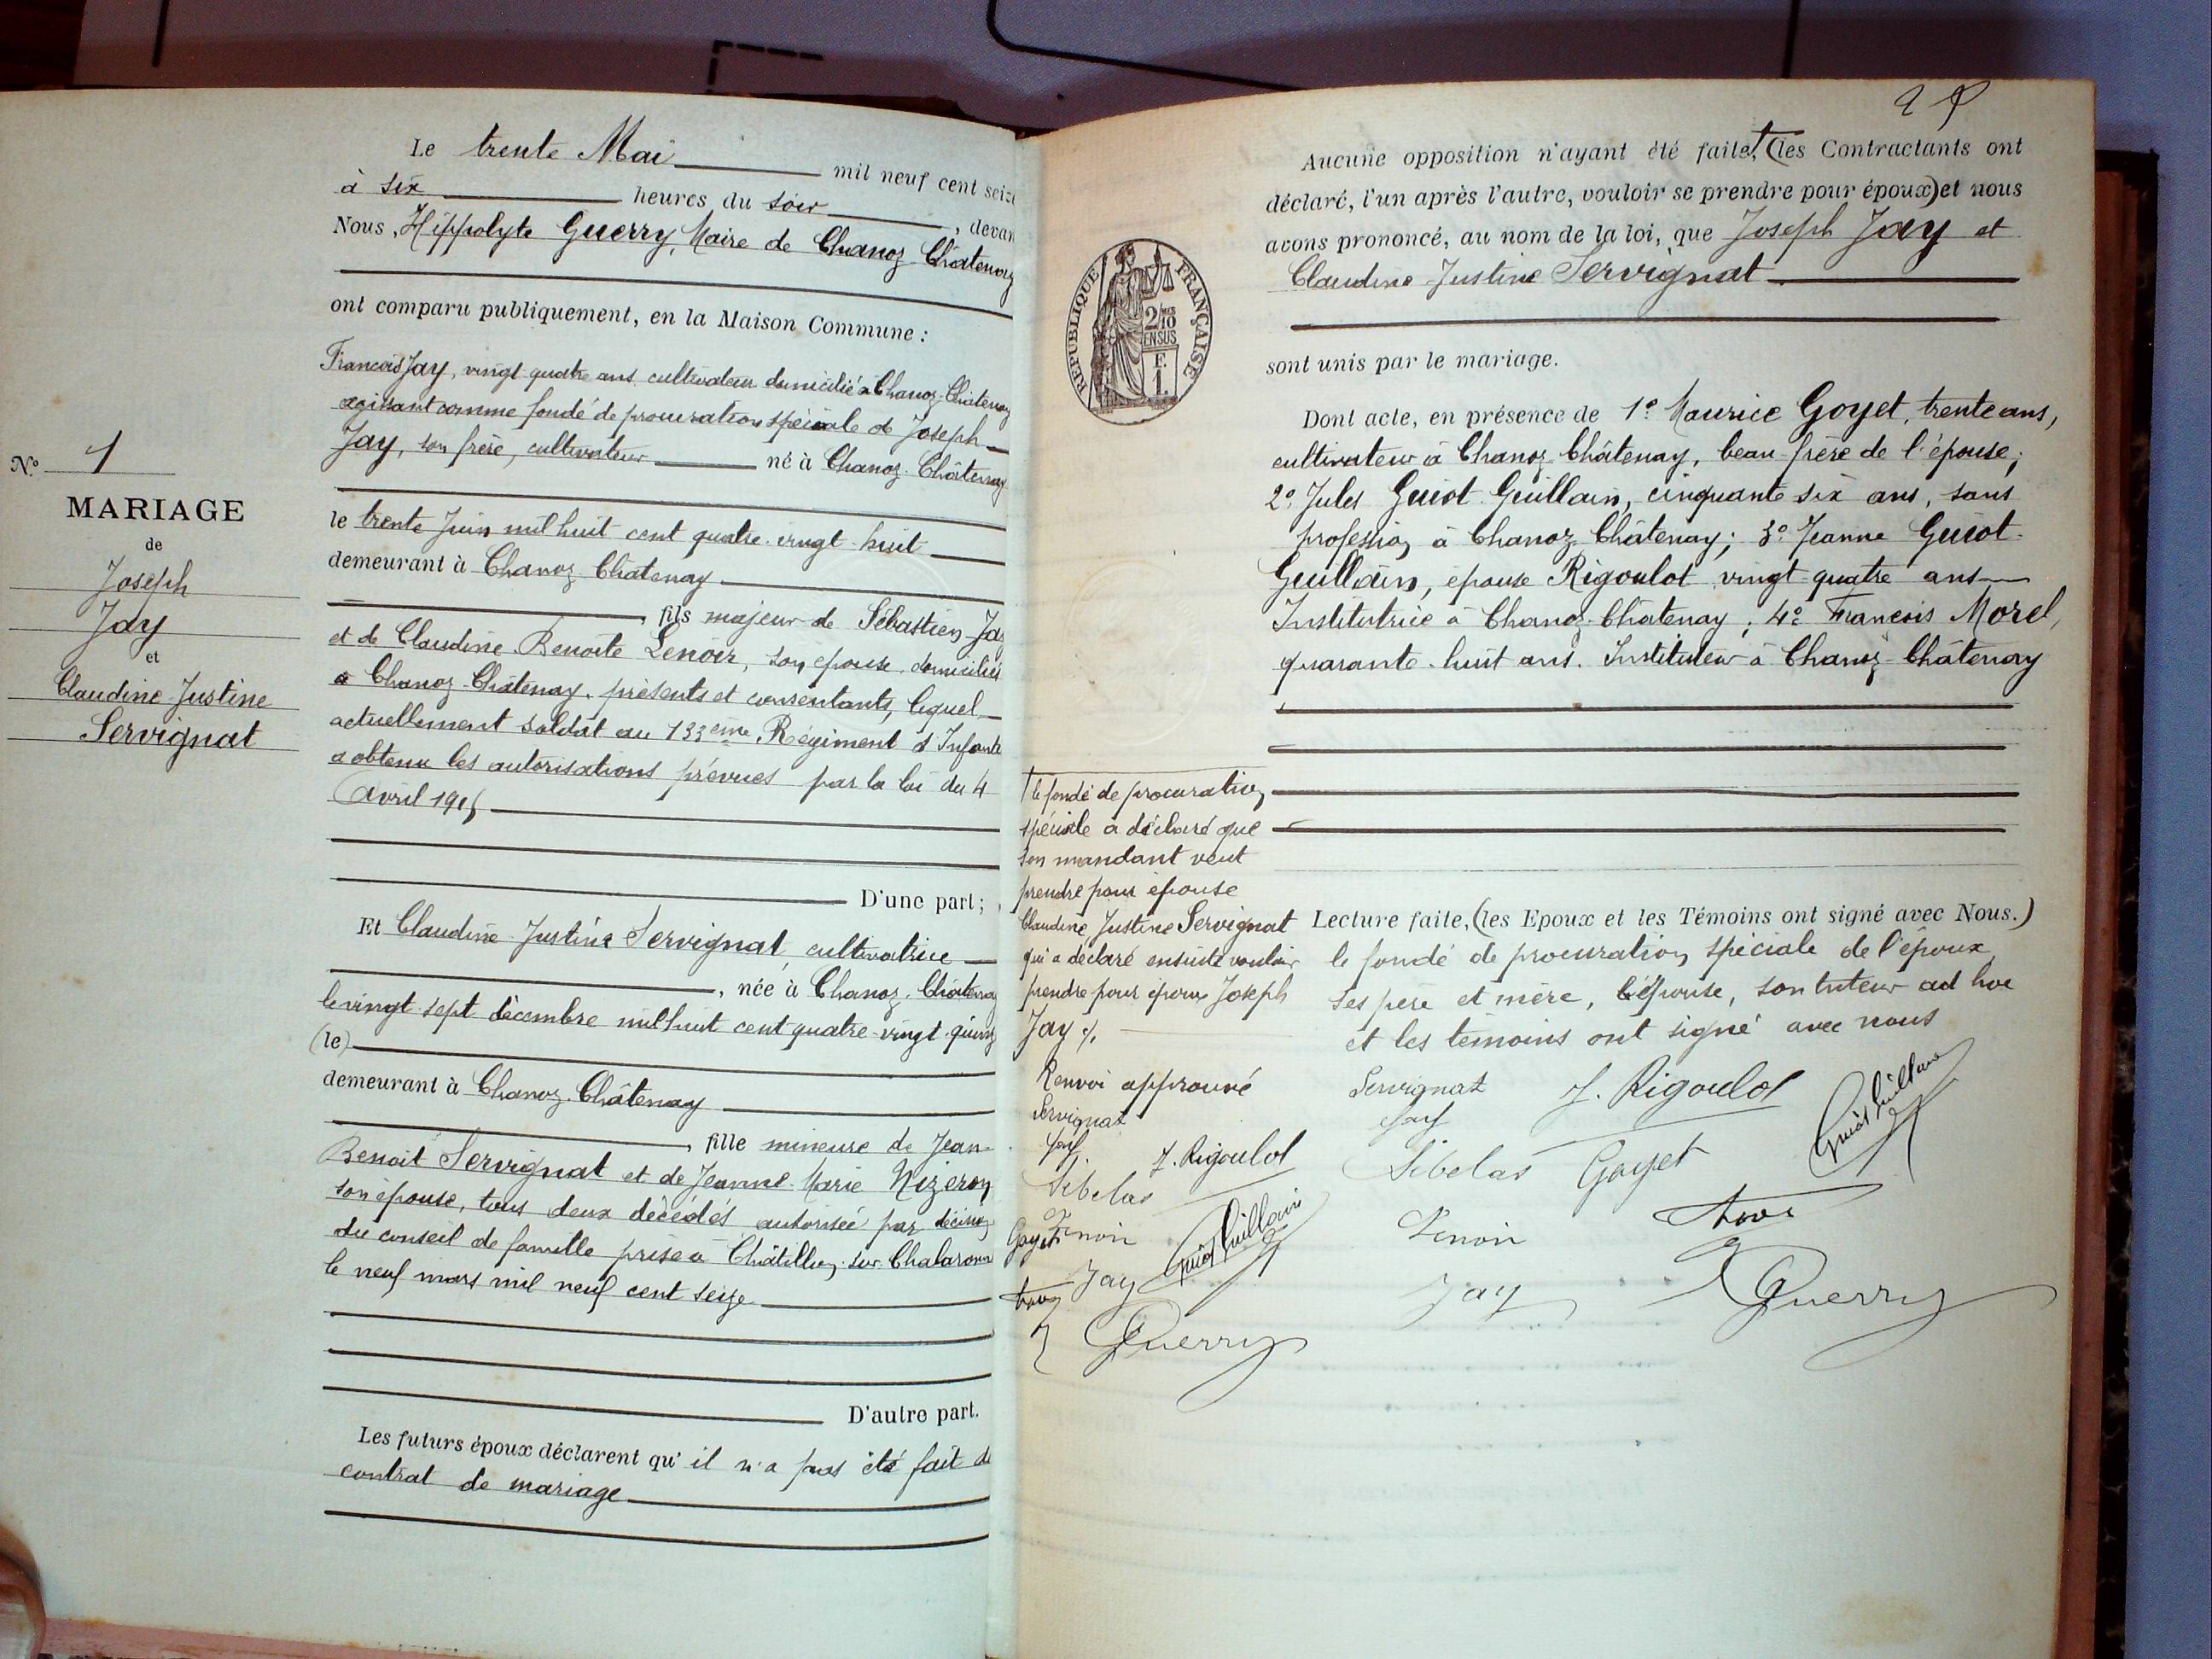 N° 1
MARIAGE
de
Joseph
Jay
et
Claudine Justine
Servignat
Le trente Mai mil neuf cent seize
à six heures du soir, devan
Nous, Hippolyte Guerry, Maire de Chanoz-Châtenay
ont comparu publiquement, en la Maison Commune :
François Jay, vingt quatre ans, cultivateur domicilié à Chanoz-Châtenay
agissant comme fondé de procuration spéciale de Joseph
Jay, son frère, cultivateur né à Chanoz-Châtenay
le trente Juin mil huit cent quatre-vingt-huit
demeurant à Chanoz-Châtenay
fils majeur de Sébastien Ja
et de Claudine Benoite Lenoir, son épouse domiciliés
à Chanoz-Châtenay, présents et consentants, lequel
actuellement soldat au 133ème Régiment d'Infante
a obtenu les autorisations prévues par la loi du 4
Avril 1915
D'une part ;
Et Claudine Justine Servignat, cultivatrice
, née à Chanoz-Châtenay
le vingt-sept décembre mil huit cent quatre-vingt-quinze
(le)
demeurant à Chanoz-Châtenay
fille mineure de Jean-
Benoit Servignat et de Jeanne-Marie Nizeron
son épouse, tous deux décédés autorisée par décision
du conseil de famille prise à Châtillon-sur-Chalaronne
le neuf mars mil neuf cent seize
D'autre part.
Les futurs époux déclarent qu'il n'a pas été fait de
contrat de mariage
RÉPUBLIQUE FRANÇAISE
2/10
EN SUS
F.
1.
Aucune opposition n'ayant été faite, † (les Contractants ont
déclaré, l'un après l'autre, vouloir se prendre pour époux) et nous
avons prononcé, au nom de la loi, que Joseph Jay et
Claudine Justine Servignat
sont unis par le mariage.
Dont acte, en présence de 1° Maurice Goyet, trente ans,
cultivateur à Chanoz-Châtenay, beau-frère de l'épouse ;
2° Jules Guiot-Guillain, cinquante six ans, sans
profession à Chanoz-Châtenay ; 3° Jeanne Guiot-
Guillain, épouse Rigoulot vingt-quatre ans
Institutrice à Chanoz-Châtenay ; 4° François Morel,
quarante-huit ans. Instituteur à Chanoz-Châtenay
† le fondé de procuration
spéciale a déclaré que
son mandant veut
prendre pour épouse
Claudine Justine Servignat
qui a déclaré ensuite vouloir
prendre pour époux Joseph
Jay ./.
Renvoi approuvé
Servignat
Jay
J. Rigoulot
Sibelas
Lenoir
Goyet
Guiot Guillain
Jay
Guerry
Lecture faite, (les Epoux et les Témoins ont signé avec Nous.)
le fondé de procuration spéciale de l'époux
ses père et mère, l'épouse, son tuteur ad hoc
et les témoins ont signé avec nous
Servignat J. Rigoulot
Jay
Guiot Guillain
Sibelas Goyet
Lenoir
Jay
Guerry